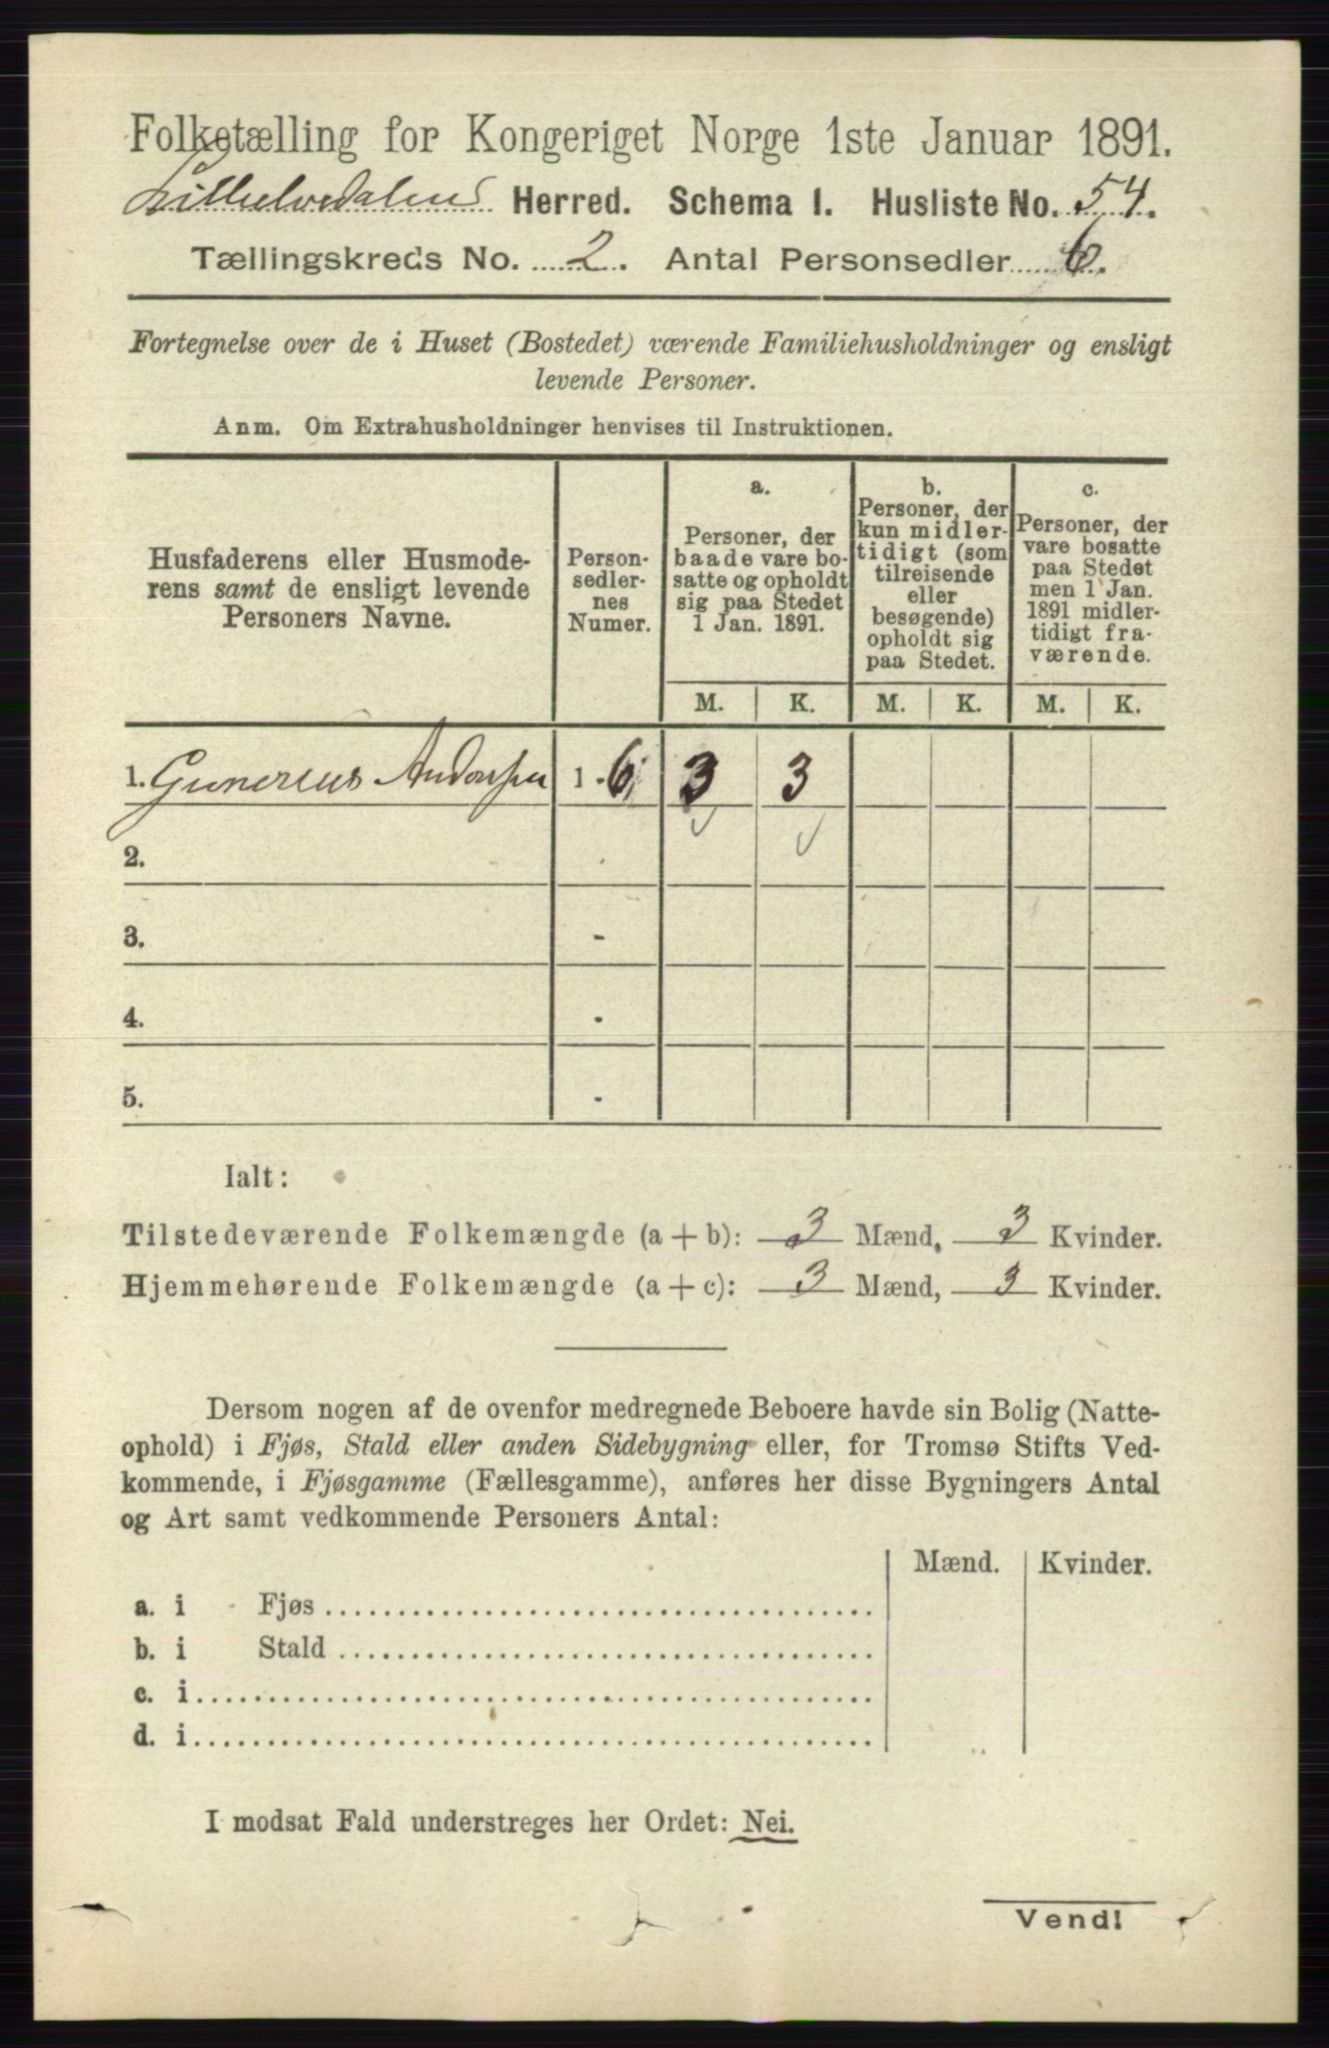 Folketælling for Kongeriget Norge 1ste Januar 1891.
Lilleelvedalen Herred. Schema I. Husliste No. 54.
Tællingskreds No. 2. Antal Personsedler 6.
Fortegnelse over de i Huset (Bostedet) værende Familiehusholdninger og ensligt
levende Personer.
Anm. Om Extrahusholdninger henvises til Instruktionen.
Husfaderens eller Husmode-
rens samt de ensligt levende
Personers Navne.
Person-
sedler-
nes
Numer.
a.
Personer, der
baade vare bo-
satte og opholdt
sig paa Stedet
1 Jan. 1891.
b.
Personer, der
kun midler-
tidigt (som
tilreisende
eller
besøgende)
opholdt sig
paa Stedet.
c.
Personer, der
vare bosatte
paa Stedet
men 1 Jan.
1891 midler-
tidigt fra-
værende.
M. K. M. K. M. K.
1. Gunerius Andersen 1-6 3 3
2.
3. -
4. -
5. -
Ialt:
Tilstedeværende Folkemængde (a + b): 3 Mænd, 3 Kvinder.
Hjemmehørende Folkemængde (a + c): 3 Mænd, 3 Kvinder.
Dersom nogen af de ovenfor medregnede Beboere havde sin Bolig (Natte-
ophold) i Fjøs, Stald eller anden Sidebygning eller, for Tromsø Stifts Ved-
kommende, i Fjøsgamme (Fællesgamme), anføres her disse Bygningers Antal
og Art samt vedkommende Personers Antal:
Mænd. Kvinder.
a. i Fjøs
b. i Stald
c. i
d. i
I modsat Fald understreges her Ordet: Nei.
Vend!